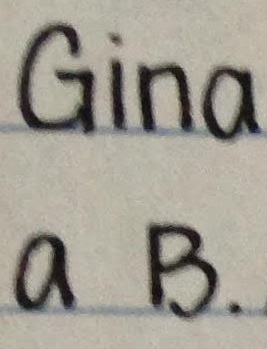 Gina
a B.